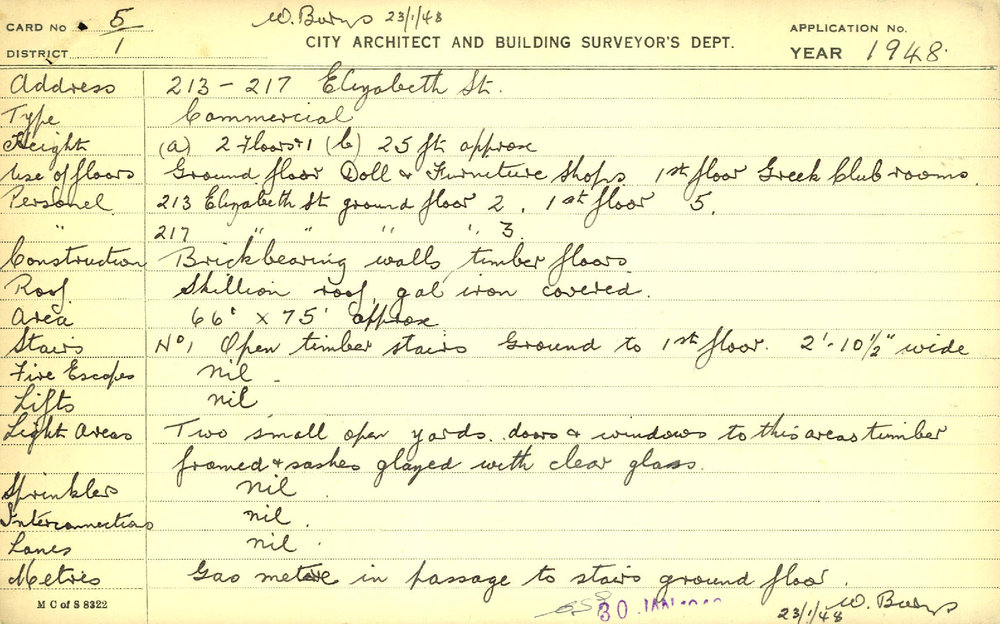 CARD No 5/1 W. Burns 23/1/48 APPLICATION No.
DISTRICT CITY ARCHITECT AND BUILDING SURVEYOR'S DEPT. YEAR 1948
Address 213 - 217 Elizabeth St.
Type Commercial
Height (a) 2 Floors + 1 (b) 25 ft approx
Use of floors Ground floor Doll & Furniture Shops 1st floor Greek Club rooms.
Personel. 213 Elizabeth St ground floor 2, 1st floor 5.
" 217 " " " " 3.
Construction Brickbearing walls timber floors
Roof Skillion roof, gal iron covered.
Area 66' x 75' approx
Stairs No 1 Open timber stairs Ground to 1st floor. 2'-10½" wide
Fire Escapes nil.
Lifts nil
Light Areas Two small open yards. doors & windows to this areas timber
framed & sashes glazed with clear glass.
Sprinkler nil
Interconnections nil.
Lanes nil.
Metres Gas metre in passage to stairs ground floor.
M C of S 8322 30 JAN 23/1/48 W. Burns